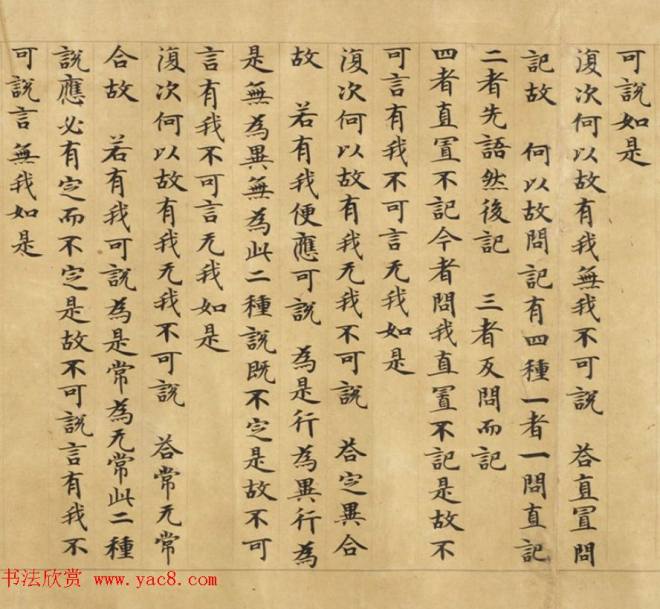 可說如是
復次何以故有我無我不可說　荅直置問
記故　何以故問記有四種一者一問直記
二者先語然後記　三者反問而記
四者直置不記今者問我直置不記是故不
可言有我不可言无我如是
復次何以故有我无我不可說　荅定異合
故　若有我便應可說　為是行為異行為
是無為異無為此二種說既不定是故不可
言有我不可言无我如是
復次何以故有我无我不可說　荅常无常
合故　若有我可說為是常為无常此二種
說應必有定而不定是故不可說言有我不
可說言無我如是
书法欣赏 www.yac8.com